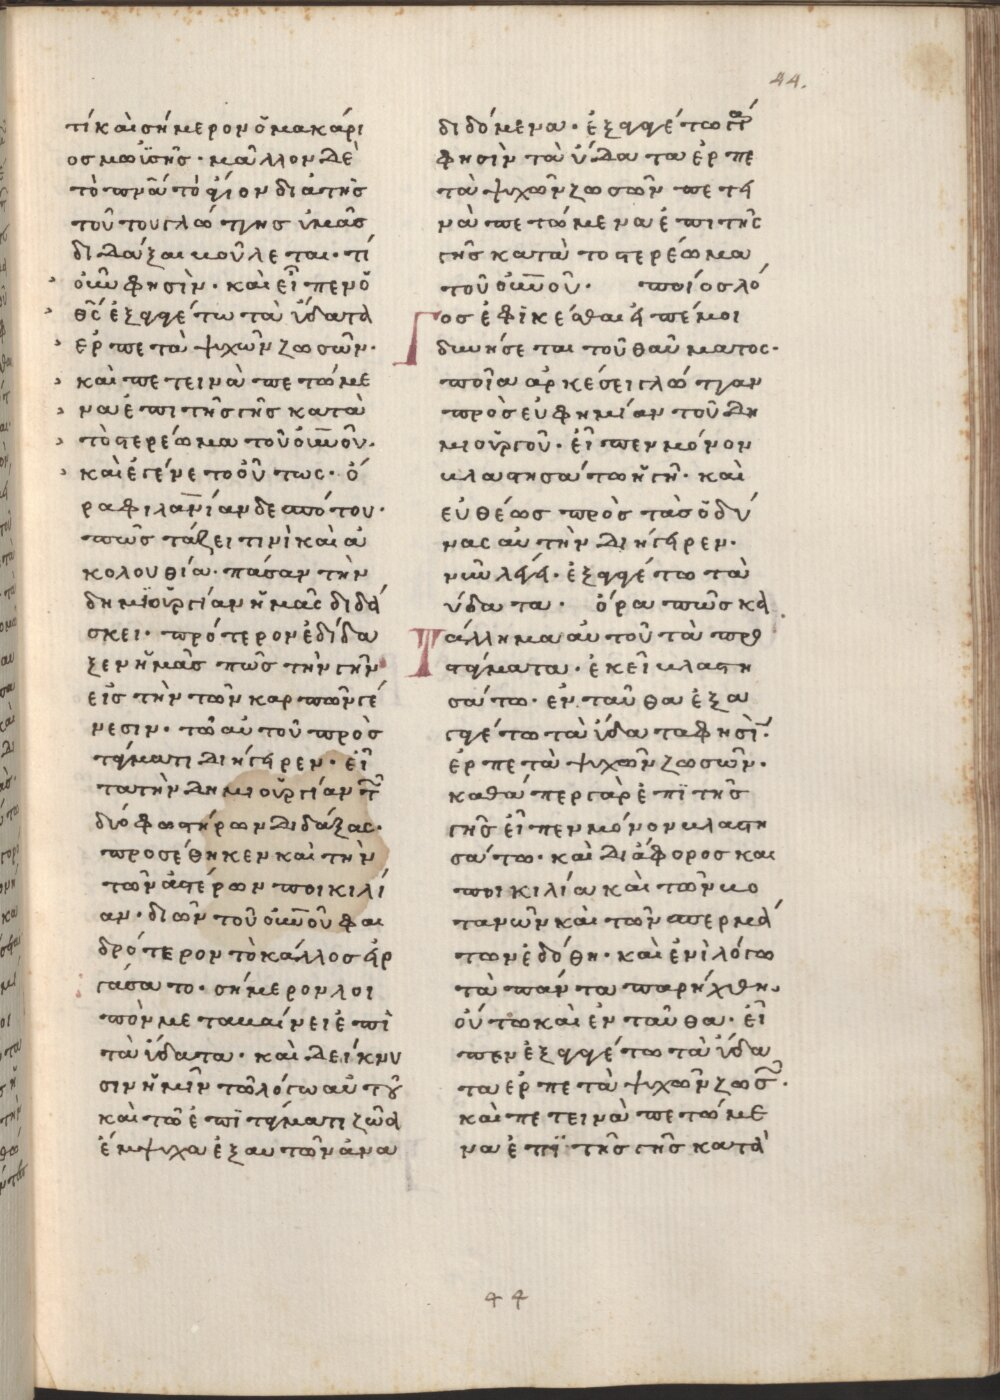 44.
τί καὶ σήμερον ὁ μακάρι
ος μωϊσῆς· μᾶλλον δὲ
τὸ πνᾶ τὸ ἅγιον διὰ τῆς
τούτου γλώττης ὑμᾶς
διδάξαι βούλεται· τί
οὖν φησὶν· καὶ εἶπεν ὁ
θς ἐξαγαγέτω τὰ ὕδατα
ἑρπετὰ ψυχῶν ζωσῶν·
καὶ πετεινὰ πετώμε
να ἐπι τῆς γῆς κατὰ
τὸ στερέωμα τοῦ οὐνοῦ·
καὶ ἐγένετο οὕτως· ὅ
ρα φιλανίαν δεσπότου·
πῶς τάξει τινὶ καὶ ἀ
κολουθία· πάσαν τὴν
δημιουργίαν ἡμᾶς διδά
σκει· πρότερον ἐδίδα
ξεν ἡμᾶς πῶς τὴν γῆν
εἰς τὴν τῶν καρπῶν γέ
νεσιν· τῶ αὐτοῦ προσ
τάγματι διήγειρεν· εἶ
τα τὴν δημιουργίαν τῶν
δύο φωστήρων διδάξας·
προσέθηκεν καὶ τὴν
τῶν ἀστέρων ποικιλί
αν· δι ὧν τοῦ οὐνοῦ φαι
δρότερον τὸ κάλλος εἰρ
γάσατο· σήμερον λοι
πὸν μεταβαίνει ἐπὶ
τὰ ὕδατα· καὶ δείκνυ
σιν ἡμῖν τῶ λόγω αὐτοῦ
καὶ τῶ ἐπιτάγματι ζῶα
ἔμψυχα ἐξ αυτῶν ἀνα
διδόμενα· ἐξαγαγέτω γάρ
φησὶν τὰ ὕδατα ἑρπε
τὰ ψυχῶν ζωσῶν πετει
νὰ πετώμενα ἐπι τῆς
γῆς κατὰ το στερέωμα
τοῦ οὐνοῦ· ποίος λό
γος ἐφικέσθαι ἢ πέμοι
δυνήσεται τοῦ θαύματος·
ποῖα ἀρκέσει γλώττα
πρὸς εὐφημίαν τοῦ δη
μιουργοῦ· εἶπεν μόνον
βλαστησάτω ἡ γῆ· καὶ
εὐθέως πρὸς τὰς ὀδύ
νας αὐτὴν διήγειρεν·
νῦν λέγει· ἐξαγαγέτω τὰ
ὕδατα· ὅρα πῶς κα
τάλλημα αὐτοῦ τὰ προσ
τάγματα· ἐκεῖ βλαστη
σάτω· ἐνταῦθα ἐξα
γαγέτω τὰ ὕδατα φησὶν·
ἑρπετὰ ψυχῶν ζωσῶν·
καθάπερ γαρ ἐπὶ τῆς
γῆς εἶπεν μόνον βλαστη
σάτω· καὶ διάφορος και
ποικιλία καὶ τῶν βο
τανῶν καὶ τῶν σπερμά
των ἐδόθη· καὶ ἑνὶ λόγω
τὰ πάντα παρήχθη·
οὕτω καὶ ἐνταῦθα· εἶ
πεν ἐξαγαγέτω τὰ ὕδα
τα ἑρπετὰ ψυχῶν ζωσῶν·
καὶ πετεινὰ πετώμε
να ἐπὶ τῆς γῆς κατὰ
44